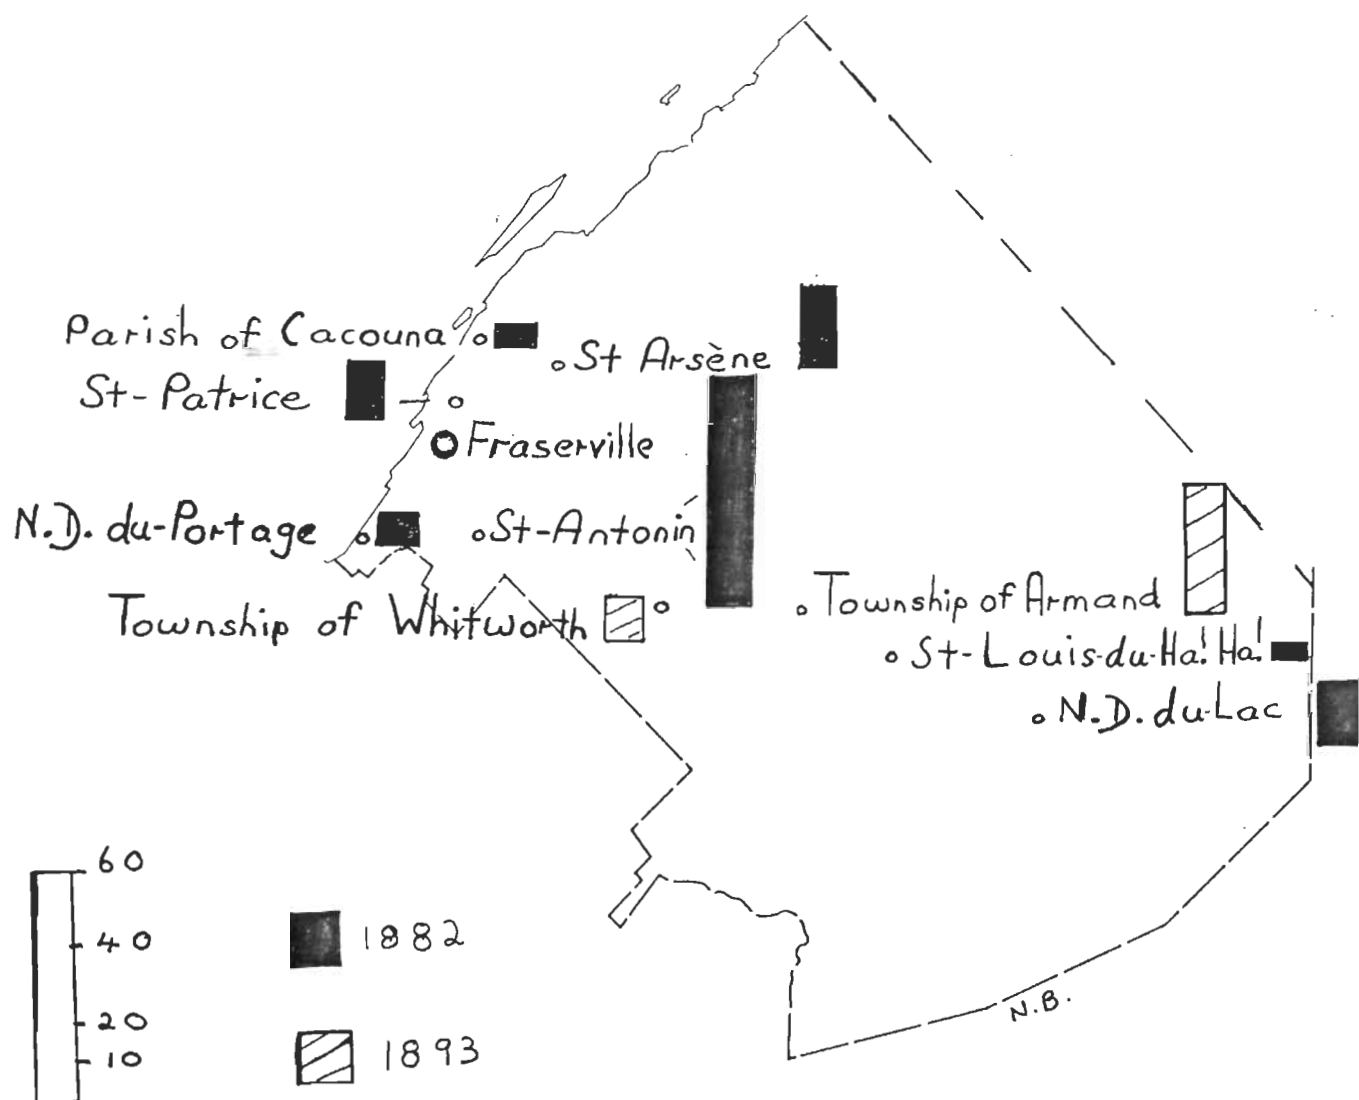 Parish of Cacouna
St Arsène
St-Patrice
Fraserville
N.D. du-Portage
St-Antonin
Township of Whitworth
Township of Armand
St-Louis-du-Ha! Ha!
N.D. du-Lac
60
40
20
10
1882
1893
N.B.